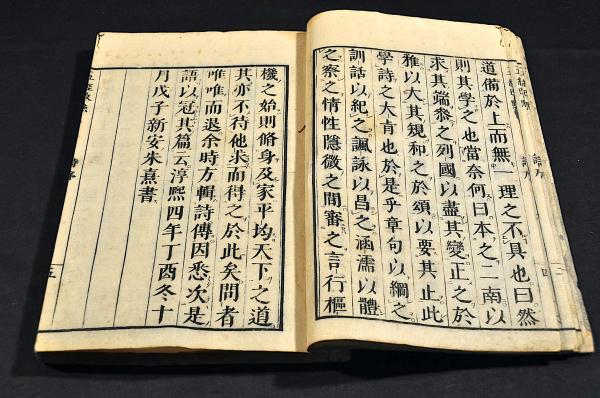 道備於上而無一理之不具也曰然
則其學之也當奈何曰本之二南以
求其端叅之列國以盡其變正之於
雅以大其規和之於頌以要其止此
學詩之大旨也於是乎章句以綱之
訓詁以紀之諷詠以昌之涵濡以體
之察之情性隱微之間審之言行樞
機之始則脩身及家平均天下之道
其亦不待他求而得之於此矣問者
唯唯而退余時方輯詩傳因悉次是
語以冠其篇云淳熙四年丁酉冬十
月戊子新安朱熹書
五